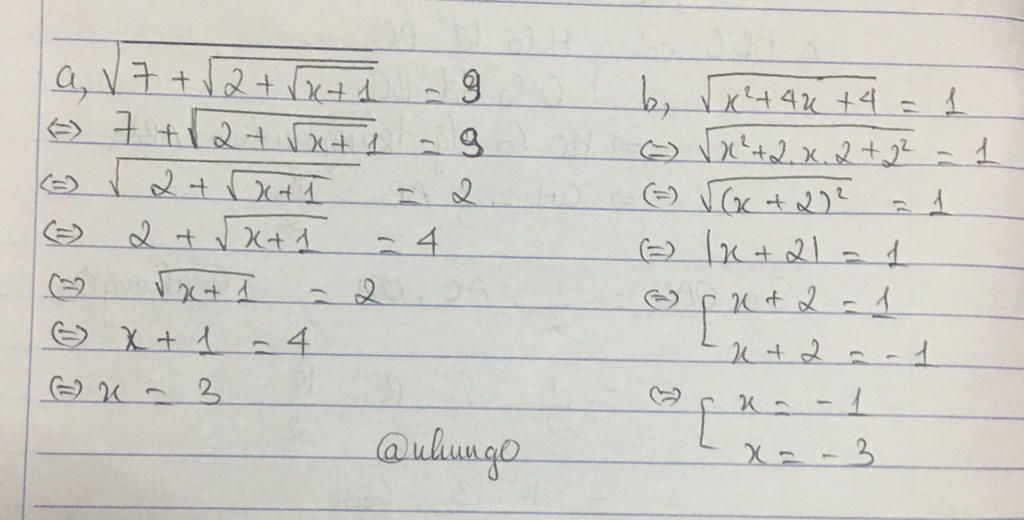 a, √(7 + √(2 + √(x+1))) = 9
⇔ 7 + √(2 + √(x+1)) = 9
⇔ √(2 + √(x+1)) = 2
⇔ 2 + √(x+1) = 4
⇔ √(x+1) = 2
⇔ x + 1 = 4
⇔ x = 3
b, √(x²+4x+4) = 1
⇔ √(x²+2.x.2+2²) = 1
⇔ √((x+2)²) = 1
⇔ |x+2| = 1
⇔ [ x + 2 = 1
x + 2 = -1
⇔ [ x = -1
x = -3